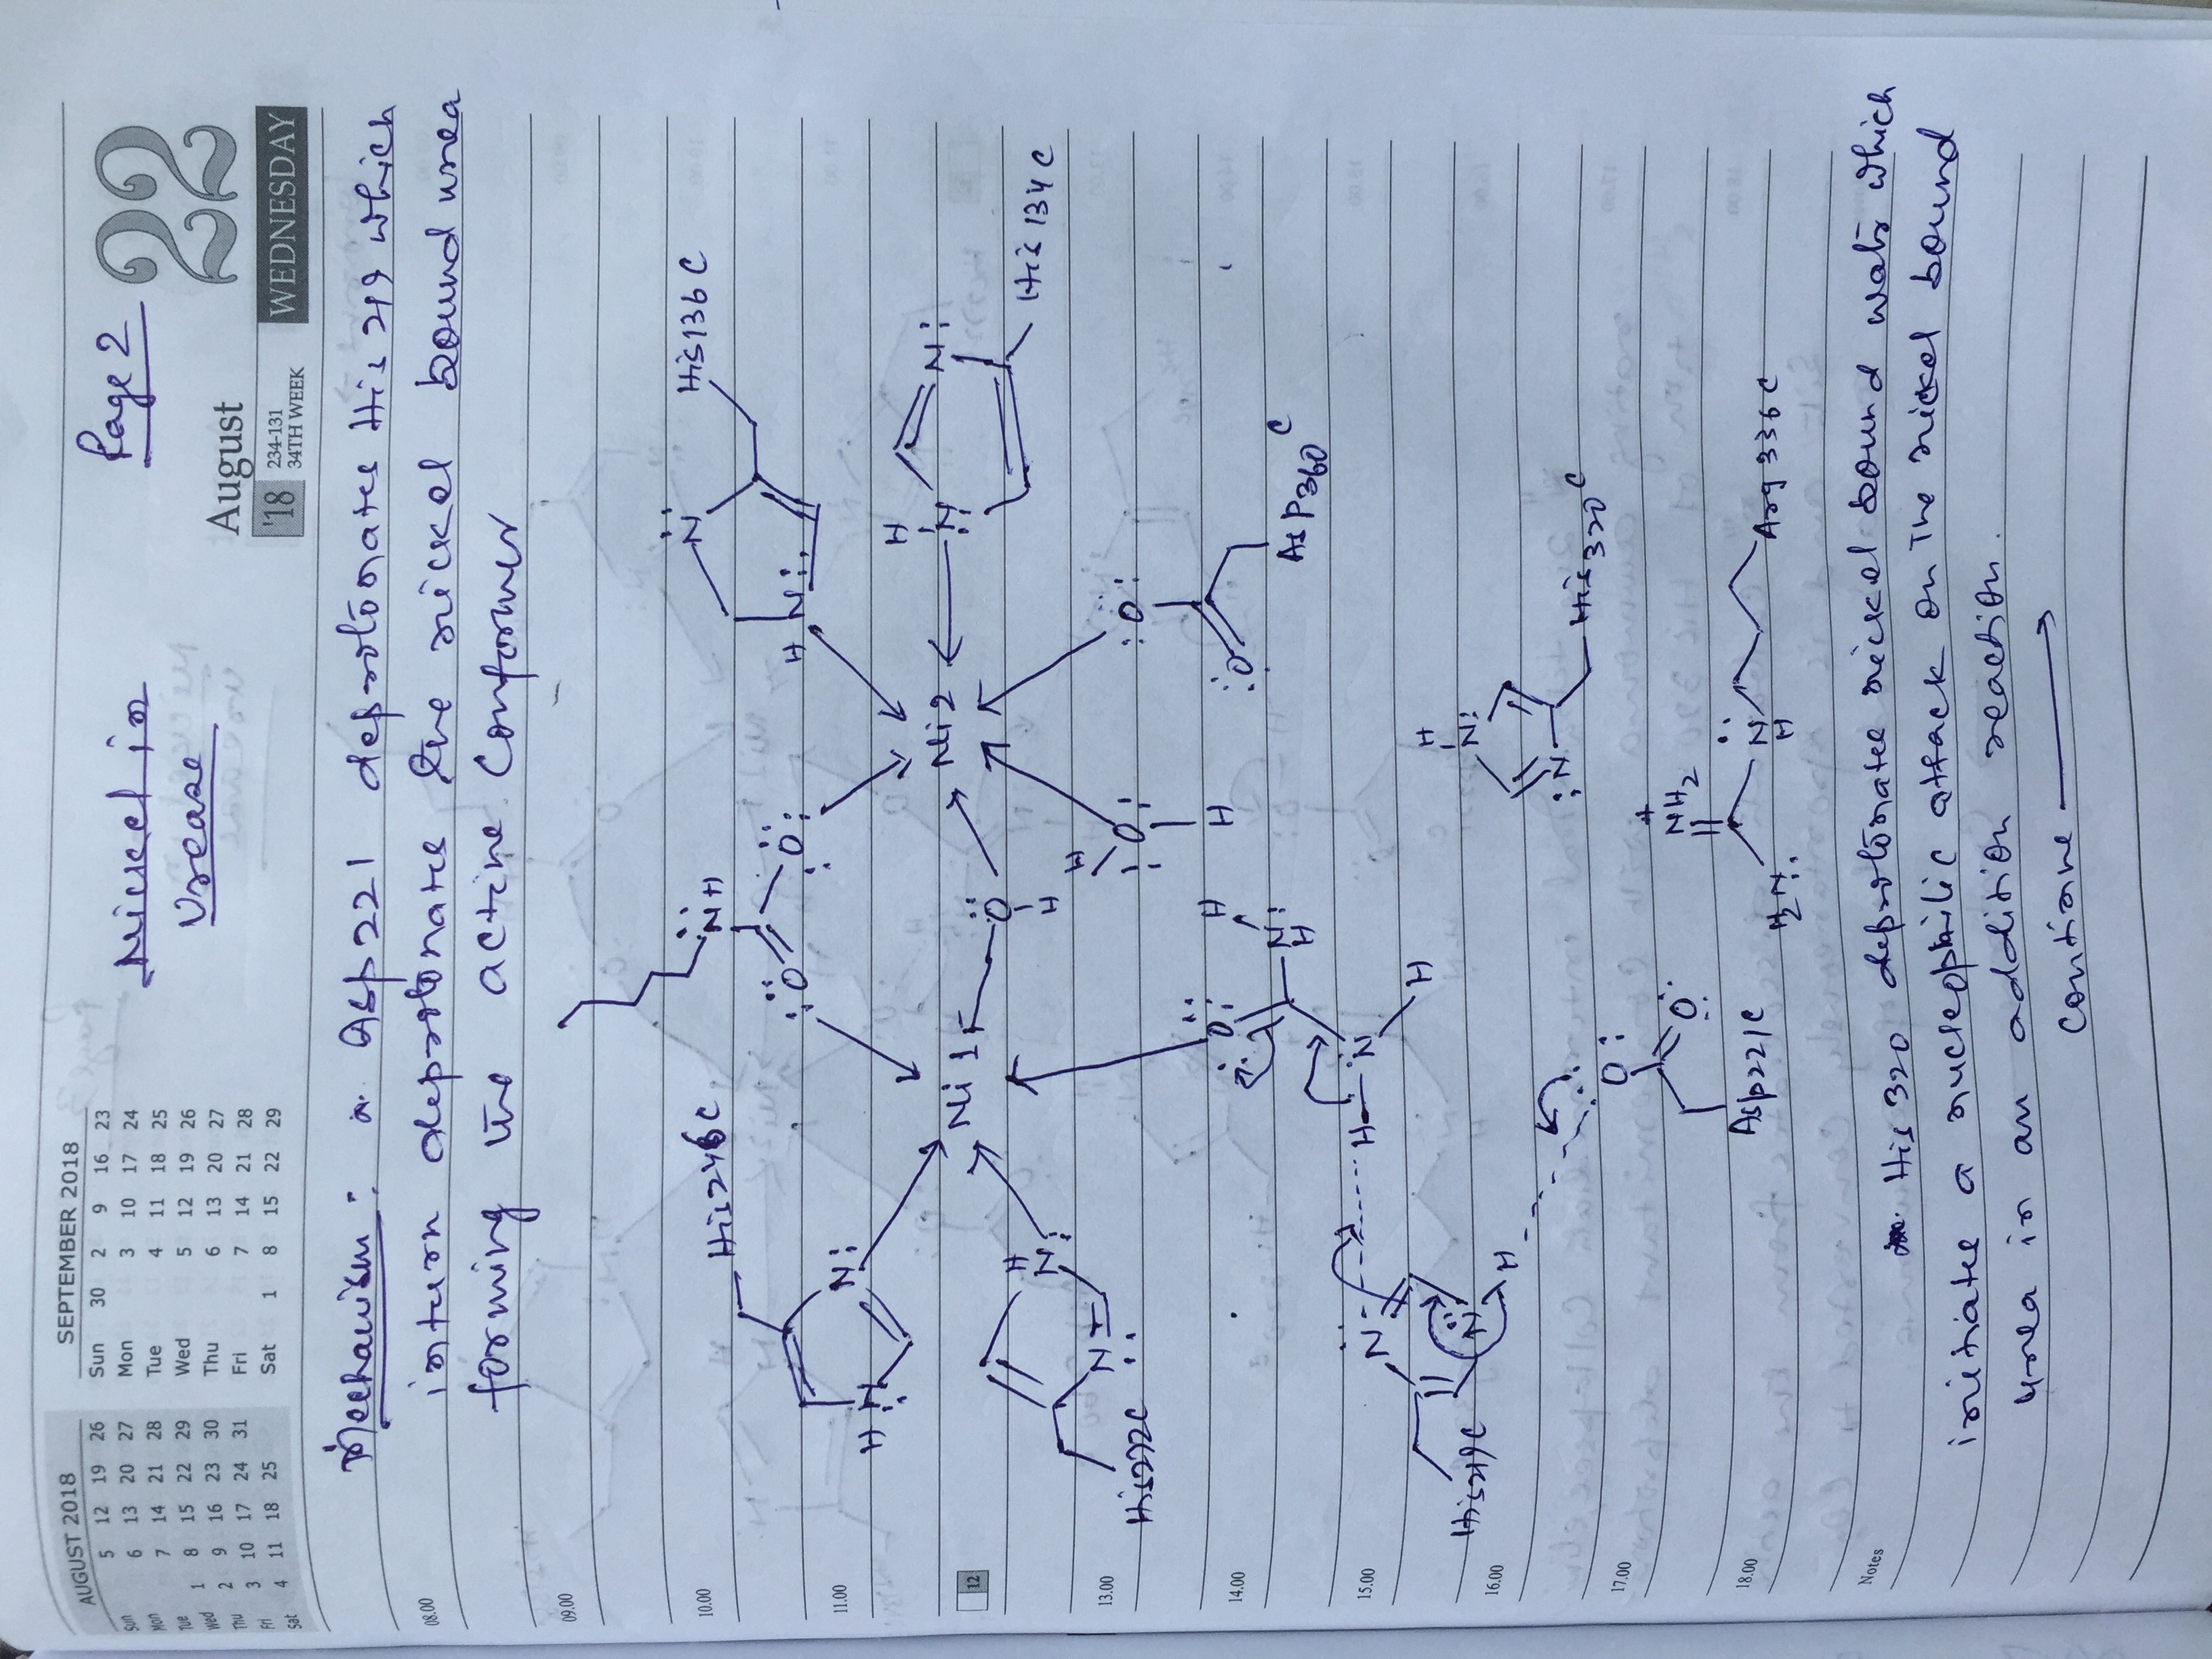 Page 2
Nickel in
Urease
22
August
WEDNESDAY
'18
234-131
34TH WEEK
SEPTEMBER 2018
Sun 30 2 9 16 23
Mon 3 10 17 24
Tue 4 11 18 25
Wed 5 12 19 26
Thu 6 13 20 27
Fri 7 14 21 28
Sat 1 8 15 22 29
AUGUST 2018
Sun 5 12 19 26
Mon 6 13 20 27
Tue 7 14 21 28
Wed 1 8 15 22 29
Thu 2 9 16 23 30
Fri 3 10 17 24 31
Sat 4 11 18 25
Mechanism : a. Asp 221 deprotonates His 219 which
inturn deprotonates the nickel bound urea
forming the active conformer
08.00
09.00
10.00
11.00
12
13.00
14.00
15.00
16.00
17.00
18.00
His136C
N
N
H
His246C
NH
O
O
N
N
H
Ni1
Ni2
O
H
H
N
N
His134C
H
N
N
His272C
O
H
H
O
O
ASP360C
O
H
N
H
H
N
H
N
N
H
His219C
H
N
N
His320C
O
O
Asp221C
+
NH2
H2N
N
H
Arg336C
Notes
His 320 deprotonates nickel bound water which
initiate a nucleophilic attack on the nickel bound
urea in an addition reaction.
Continue